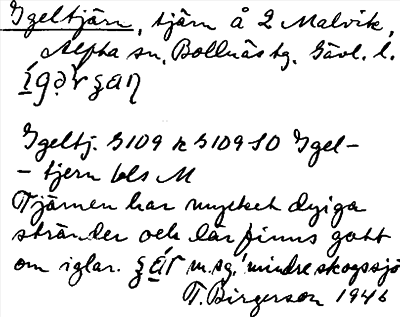 Igeltjärn, tjärn å 2 Malvik,
Alfta sn, Bollnäs tg. Gävl. l.
Igeltj. S109 k S109 SO Igel-
- tjern bls M
Tjärnen har mycket dyiga
stränder och lär finns gott
om iglar. m. sg. 'mindre skogssjö
T. Birgerson 1946